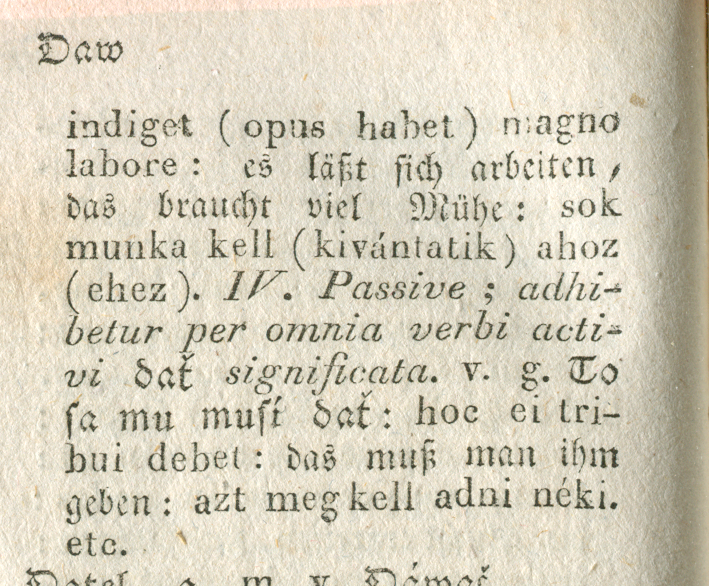 Daw
indiget (opus habet) magno
labore: es läßt sich arbeiten,
das braucht viel Mühe: sok
munka kell (kivántatik) ahoz
(ehez). IV. Passive; adhi-
betur per omnia verbi acti-
vi dať significata. v. g. To
sa mu musí dať: hoc ei tri-
bui debet: das muß man ihm
geben: azt meg kell adni néki.
etc.